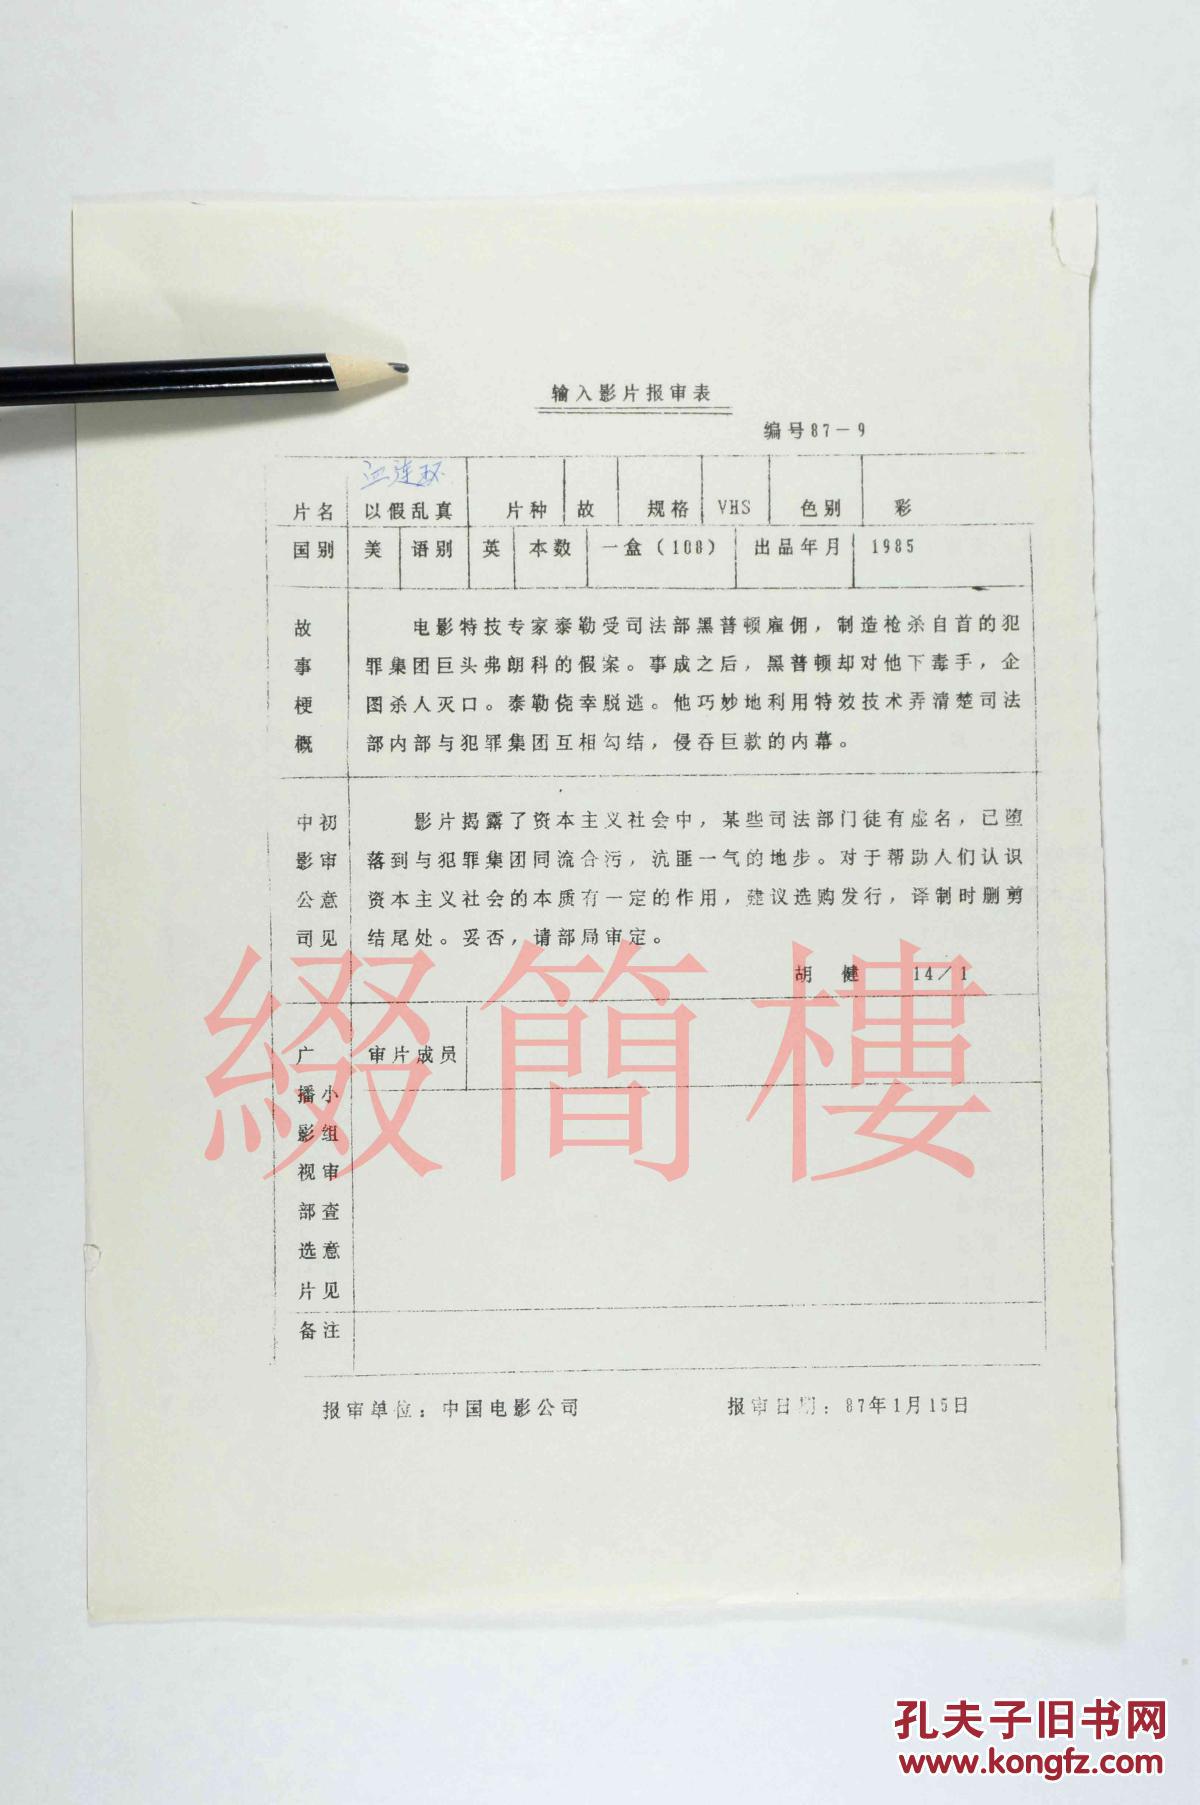 输入影片报审表
编号87－9
血连环
片名 以假乱真 片种 故 规格 VHS 色别 彩
国别 美 语别 英 本数 一盒（108） 出品年月 1985
故事梗概
电影特技专家泰勒受司法部黑普顿雇佣，制造枪杀自首的犯
罪集团巨头弗朗科的假案。事成之后，黑普顿却对他下毒手，企
图杀人灭口。泰勒侥幸脱逃。他巧妙地利用特效技术弄清楚司法
部内部与犯罪集团互相勾结，侵吞巨款的内幕。
中影公司初审意见
影片揭露了资本主义社会中，某些司法部门徒有虚名，已堕
落到与犯罪集团同流合污，沆瀣一气的地步。对于帮助人们认识
资本主义社会的本质有一定的作用，建议选购发行，译制时删剪
结尾处。妥否，请部局审定。
胡健 14／1
广播影视部选片小组审查意见
审片成员
备注
报审单位：中国电影公司 报审日期：87年1月15日
綴簡樓
孔夫子旧书网
www.kongfz.com